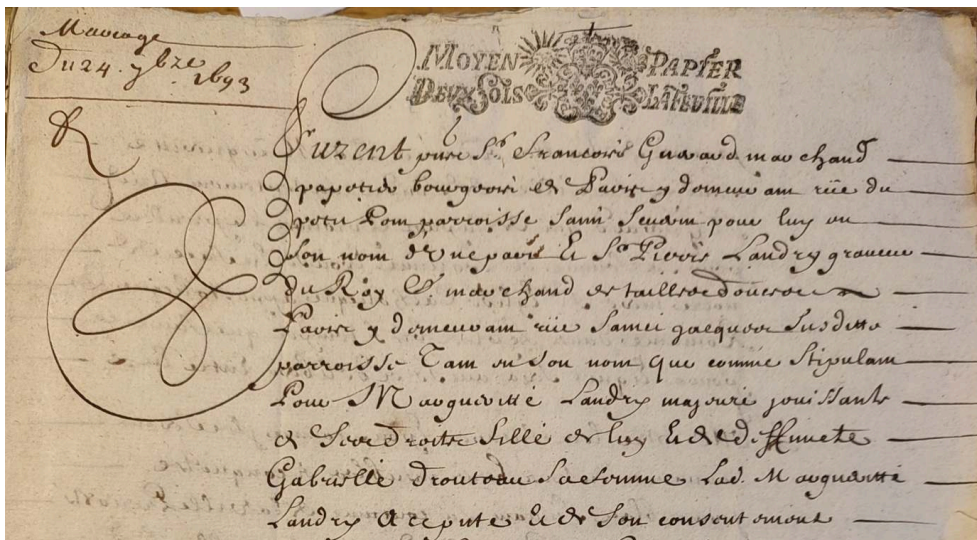 Mariage
Du 24. 7bre 1693
MOYEN PAPIER
DEUX SOLS LA FEUILLE
Furent pnts Sr. Francois Guerard marchand
papetier bourgeois de Paris y demeurant rüe du
petit Pont parroisse Saint Severin pour luy en
son nom d'une part Et Sr. Pierre Landry graveur
du Roy Et marchand de tailles douces a
Paris y demeurant rüe Saint Jacques susditte
parroisse Tant en son nom que comme stipulant
Pour Margueritte Landry majeure jouissante
de ses droits fille de luy Et de deffuncte
Gabrielle drouteau sa femme Lad. Margueritte
Landry a ce pnte Et de son consentement